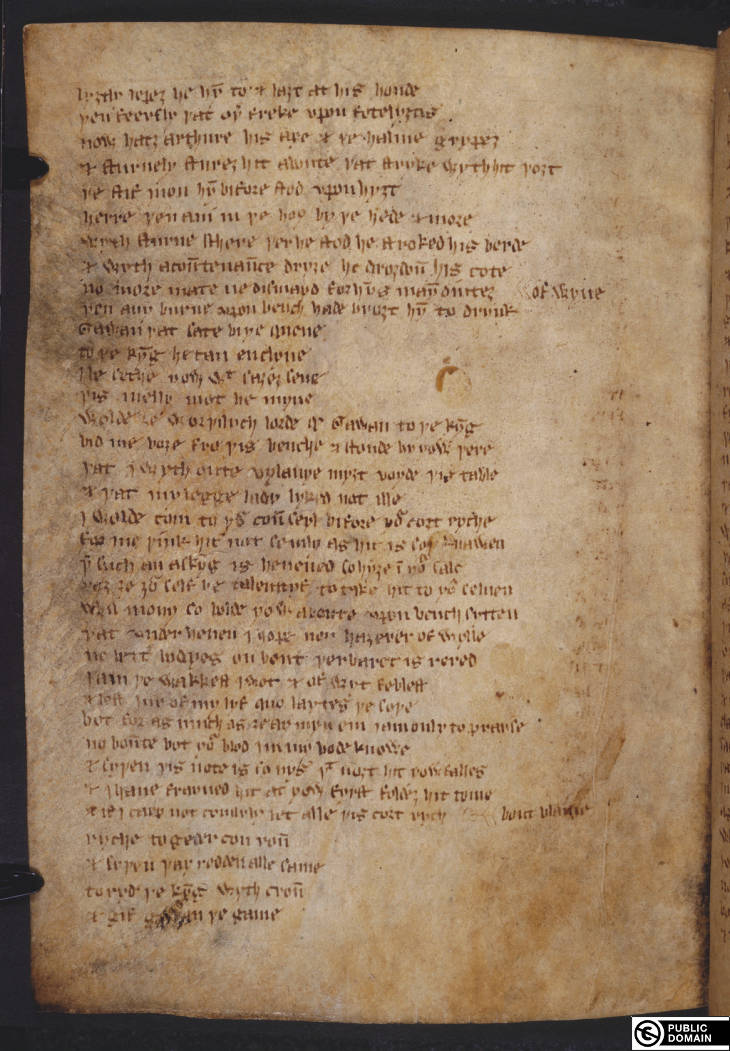 lyȝtly lepeȝ he hȳ to & laȝt at his honde
þen feersly þat oþ̄ freke vpon fote lyȝtis
now hatȝ arthure his axe & þe halme grypeȝ
& sturnely stureȝ hit aboute þat stryke wyth hit þoȝt
þe stif mon hȳ bifore stod vpon hyȝt
herre þen ani in þe hous by þe hede & more
wyth sturne schere þer he stod he stroked his berde
& wyth a coūtenaūce dryȝe he droȝ doū his cote
no more mate ne dismayd for hys mayn dinteȝ of wyne
þen any burne vpon bench hade broȝt hȳ to drynk
Gawan þat sate bi þe quene
to þe kyng he can enclyne
seche now wᵗ saȝeȝ sene
þis melly mot be myne
Wolde ȝe worþilych lorde qᵒ Gawan to þe kyng
bid me boȝe fro þis benche & stonde by yow þere
þat I wyth oute vylanye myȝt voyde þis table
& þat my legge lady lyked not ille
I wolde com to yoʳ coūseyl bifore yoʳ cort ryche
for me þink hit not semly as hit is soþ knawen
þʳ such an askyng is heuened so hyȝe ī yoʳ sale
þaȝ ȝe ȝoʳ self be talenttyf to take hit to yoʳ seluen
whil mony so bolde yow aboute vpon bench sytten
þat vnder heuen I hope non haȝerer of wylle
ne bett̄ bodyes on bent þer baret is rered
I am þe wakkest I wot & of wyt feblest
& lest lur of my lyf quo laytes þe soþe
bot for as much as ȝe ar myn em I am only to prayse
no boūte bot yoʳ blod I in my bode knowe
& syþen þis note is so nys þᵗ noȝt hit yow falles
& I haue frayned hit at yow fyrst foldeȝ hit to me
& if I carp not comlyly let alle þis cort rych bout blame
ryche to geder con roū
& syþen þay redden alle same
to ryd þe kyng wyth croū
& gif gawan þe game
PUBLIC
DOMAIN